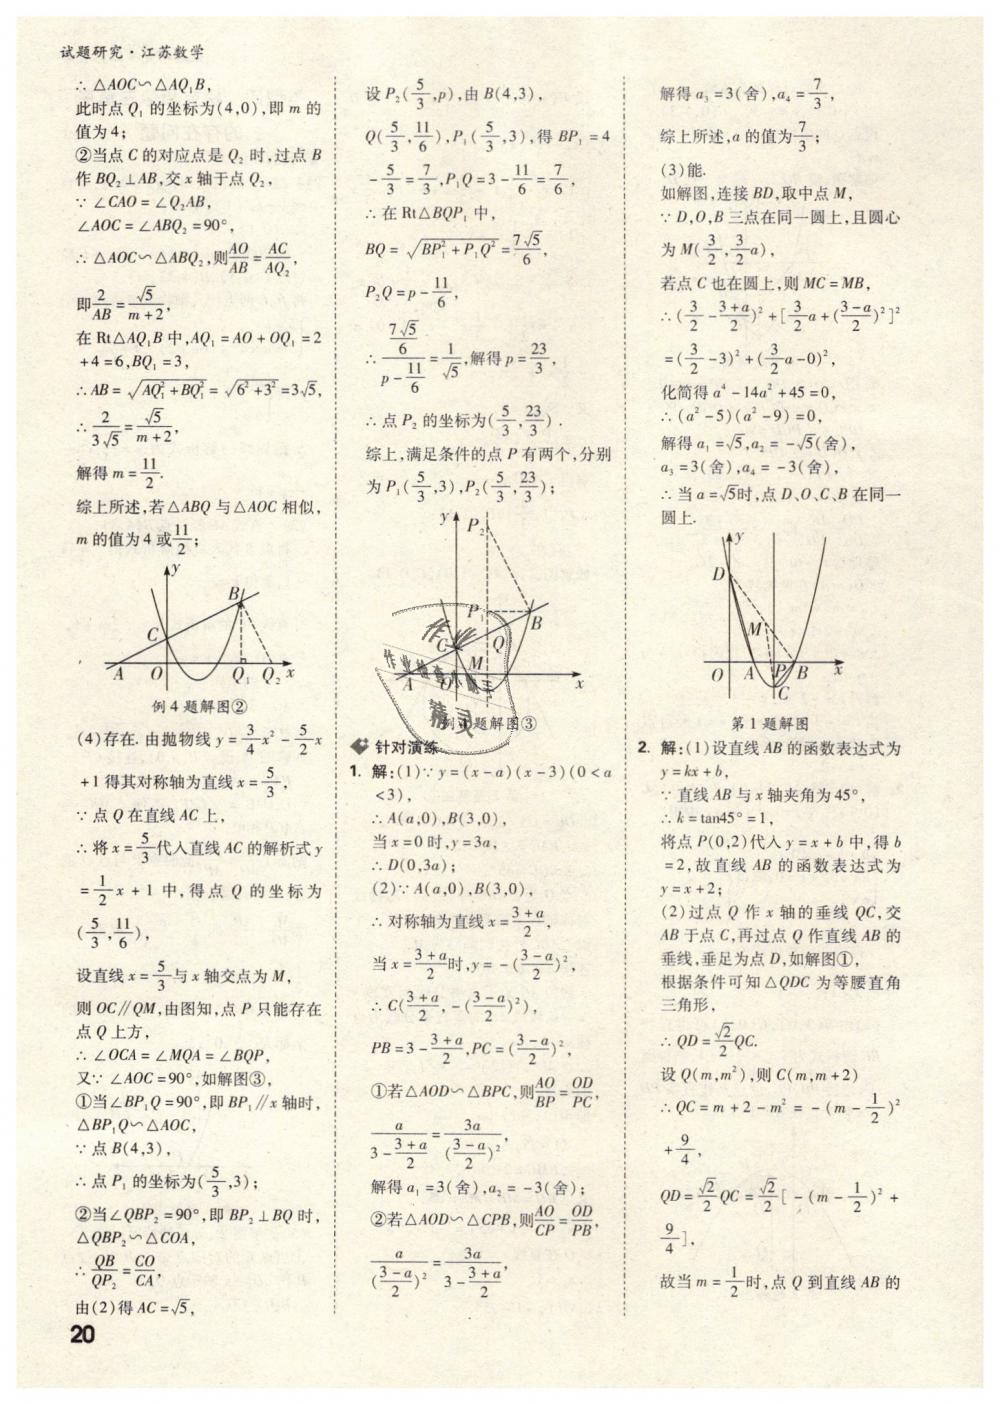 试题研究·江苏数学
∴ △AOC∽△AQ₁B,
此时点 Q₁ 的坐标为(4,0),即 m 的
值为4;
②当点 C 的对应点是 Q₂ 时,过点 B
作 BQ₂⊥AB,交 x 轴于点 Q₂,
∵ ∠CAO=∠Q₂AB,
∠AOC=∠ABQ₂=90°,
∴ △AOC∽△ABQ₂,则AO/AB=AC/AQ₂,
即2/AB=√5/(m+2),
在 Rt△AQ₁B 中,AQ₁=AO+OQ₁=2
+4=6,BQ₁=3,
∴AB=√(AQ₁²+BQ₁²)=√(6²+3²)=3√5,
∴2/(3√5)=√5/(m+2),
解得 m=11/2.
综上所述,若△ABQ 与△AOC 相似,
m 的值为4或11/2;
y
B
C
A
O
Q₁
Q₂
x
例4题解图②
(4)存在. 由抛物线 y=3/4x²-5/2x
+1得其对称轴为直线 x=5/3,
∵点 Q 在直线 AC 上,
∴将 x=5/3代入直线 AC 的解析式 y
=1/2x+1 中,得点 Q 的坐标为
(5/3,11/6),
设直线 x=5/3与 x 轴交点为 M,
则 OC∥QM,由图知,点 P 只能存在
点 Q 上方,
∴ ∠OCA=∠MQA=∠BQP,
又∵ ∠AOC=90°,如解图③,
①当∠BP₁Q=90°,即 BP₁∥x 轴时,
△BP₁Q∽△AOC,
∵点 B(4,3),
∴点 P₁ 的坐标为(5/3,3);
②当∠QBP₂=90°,即 BP₂⊥BQ 时,
△QBP₂∽△COA,
∴QB/QP₂=CO/CA,
由(2)得 AC=√5,
20
设 P₂(5/3,p),由 B(4,3),
Q(5/3,11/6),P₁(5/3,3),得 BP₁=4
-5/3=7/3,P₁Q=3-11/6=7/6,
∴在 Rt△BQP₁ 中,
BQ=√(BP₁²+P₁Q²)=7√5/6,
P₂Q=p-11/6,
∴(7√5/6)/(p-11/6)=1/√5,解得 p=23/3,
∴点 P₂ 的坐标为(5/3,23/3).
综上,满足条件的点 P 有两个,分别
为 P₁(5/3,3),P₂(5/3,23/3);
y
P₂
P₁
B
C
Q
M
A
O
x
作业检查小助手
精灵
例4题解图③
针对演练
1. 解:(1)∵y=(x-a)(x-3)(0<a
<3),
∴A(a,0),B(3,0),
当 x=0时,y=3a,
∴D(0,3a);
(2)∵A(a,0),B(3,0),
∴对称轴为直线 x=(3+a)/2,
当 x=(3+a)/2时,y=-((3-a)/2)²,
∴C((3+a)/2,-((3-a)/2)²),
PB=3-(3+a)/2,PC=((3-a)/2)²,
①若△AOD∽△BPC,则AO/BP=OD/PC,
a/(3-(3+a)/2)=3a/((3-a)/2)²,
解得 a₁=3(舍),a₂=-3(舍);
②若△AOD∽△CPB,则AO/CP=OD/PB,
a/((3-a)/2)²=3a/(3-(3+a)/2),
解得 a₃=3(舍),a₄=7/3,
综上所述,a 的值为7/3;
(3)能.
如解图,连接 BD,取中点 M,
∵D,O,B 三点在同一圆上,且圆心
为 M(3/2,3/2a),
若点 C 也在圆上,则 MC=MB,
∴(3/2-(3+a)/2)²+[3/2a+((3-a)/2)²]²
=(3/2-3)²+(3/2a-0)²,
化简得 a⁴-14a²+45=0,
∴(a²-5)(a²-9)=0,
解得 a₁=√5,a₂=-√5(舍),
a₃=3(舍),a₄=-3(舍),
∴当 a=√5时,点 D、O、C、B 在同一
圆上.
y
D
M
O
A
P
B
x
C
第1题解图
2. 解:(1)设直线 AB 的函数表达式为
y=kx+b,
∵直线 AB 与 x 轴夹角为45°,
∴k=tan45°=1,
将点 P(0,2)代入 y=x+b 中,得 b
=2,故直线 AB 的函数表达式为
y=x+2;
(2)过点 Q 作 x 轴的垂线 QC,交
AB 于点 C,再过点 Q 作直线 AB 的
垂线,垂足为点 D,如解图①,
根据条件可知△QDC 为等腰直角
三角形,
∴QD=√2/2QC.
设 Q(m,m²),则 C(m,m+2)
∴QC=m+2-m²=-(m-1/2)²
+9/4,
QD=√2/2QC=√2/2[-(m-1/2)²+
9/4],
故当 m=1/2时,点 Q 到直线 AB 的